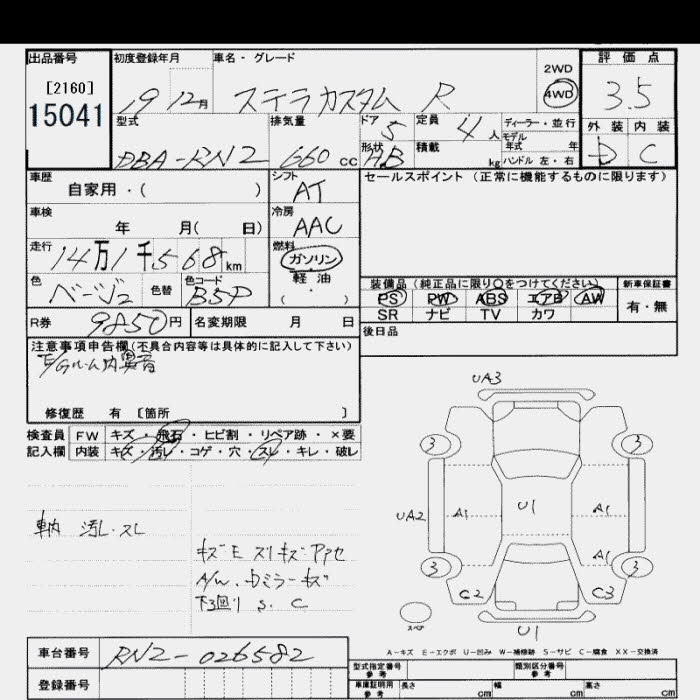 出品番号 初度登録年月 車名・グレード 評価点
[2160] 15041
19 12月 ステラカスタム R
2WD
4WD
3.5
型式 排気量 ドア 5 定員 4人 ディーラー・並行 外装 内装
DBA-RN2 660cc 形状 H.B 積載 kg モデル年式 年 ハンドル 左・右 D C
車歴 シフト セールスポイント (正常に機能するものに限ります)
自家用・( ) AT
車検 冷房
年 月( 日) AAC
走行 燃料
14万1千568km ガソリン・軽油・( )
色 色替 色コード 装備品(純正品に限り○をつけてください) 新車保証書
ベージュ B5P PS PW ABS エアB AW 有・無
SR ナビ TV カワ
R券 9850円 名変期限 月 日 後日品
注意事項申告欄(不具合内容等は具体的に記入して下さい)
E/Gルーム内異音
修復歴 有 [箇所 ]
検査員 FW キズ・飛石・ヒビ割・リペア跡・×要
記入欄 内装 キズ・汚レ・コゲ・穴・スレ・キレ・破レ
UA3
3 3
UA2 A1 U1 A1
A1
3 3
C2 C3
スペア
U1
車内 汚レ.スレ
キズ E スリキズ アアセ
A/W.Dミラーキズ
下回り S.C
A-キズ E-エクボ U-凹み W-補修跡 S-サビ C-腐食 XX-交換済
車台番号 RN2-026582
登録番号
型式指定番号 参考 類別区分番号 参考
車庫証明用 参考 長さ cm 幅 cm 高さ cm